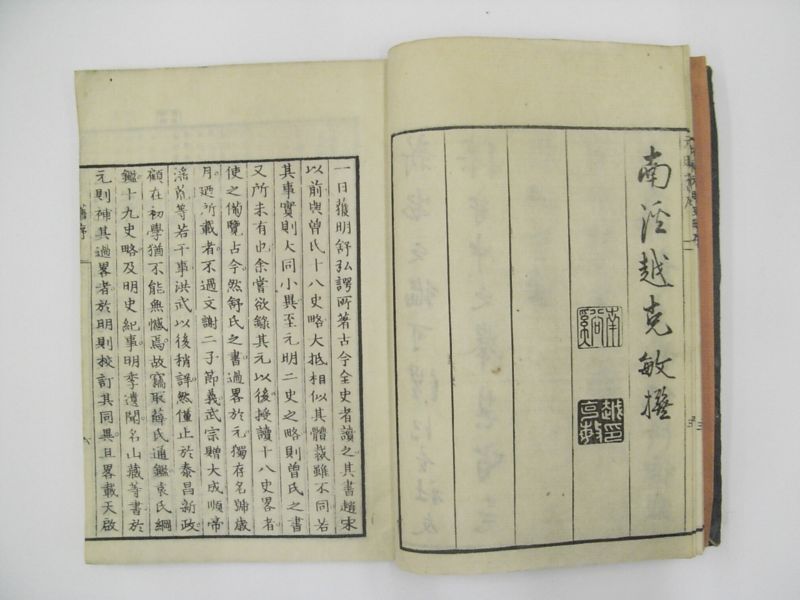 南涇越克敏撰
南谿
越克敏印
一日獲明舒弘諤所著古今全史者讀之其書趙宋
以前與曽氏十八史略大抵相似其體裁雖不同若
其事實則大同小異至元明二史之略則曽氏之書
又所未有也余嘗欲錄其元以後授讀十八史畧者
使之備覽古今然舒氏之書過畧於元獨有名歸歳
月迺所載者不過文謝二子節義武宗贈大成順帝
淫荒等若干事洪武以後稍詳然僅止於泰昌新政
顧在初學猶不能無憾焉故竊取薛氏通鑑袁氏綱
鑑十九史略及明史紀事明季遺聞名山藏等書於
元則補其過畧者於明則校訂其同異且畧載天啟
舊序